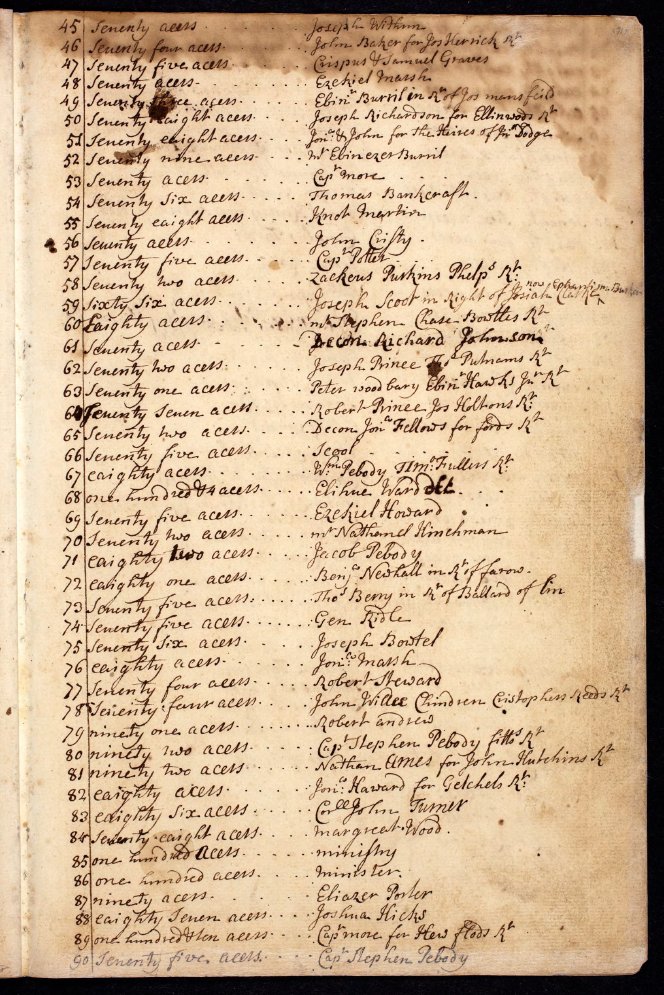 45 Seventy acers ..... Joseph Withum
46 Seventy four acers ..... John Baker for Jos Herrick Rt
47 Seventy five acers ..... Crispus & Samuel Graves
48 Seventy acers ..... Ezekiel Marsh
49 Seventy three acers ..... Ebinr Burril in Rt of Jos mansfeild
50 Seventy eaight acers ..... Joseph Richardson for Ellinwods Rt
51 Seventy eaight acers ..... Jona & John for the Haires of Jna Dodge
52 Seventy nine acers ..... mr Ebinezer Burril
53 Seventy acers ..... Capt more
54 Seventy Six acers ..... Thomas Bankcraft
55 Seventy eaight acers ..... Knot Martin
56 Seventy acers ..... John Cristy
57 Seventy five acers ..... Capt Potter
58 Seventy two acers ..... Zackeus Purkins Phelps Rt
59 Sixty Six acers ..... Joseph Scoot in Right of Josiah Clarke now Ephraim
60 Eaighty acers ..... mr Stephen Chase Bowttes Rt
61 Seventy acers ..... Decon Richard Johnson
62 Seventy two acers ..... Joseph Prince Putnams Rt
63 Seventy one acers ..... Peter woodbary Ebinr Hawks Jnr Rt
64 Seventy Seven acers ..... Robert Prince Jos Holtons Rt
65 Seventy two acers ..... Decon Jona Fellows for fords Rt
66 Seventy five acers ..... Scool
67 eaighty acers ..... Wm Pebody Timo Fullers Rt
68 one hundred & 4 acers ..... Elihue Ward
69 Seventy five acers ..... Ezekiel Howard
70 Seventy two acers ..... mr Nathanel Hinchman
71 eaighty two acers ..... Jacob Pebody
72 eaighty one acers ..... Benja Newhall in Rt of farow
73 Seventy five acers ..... Thos Berry in Rt of Ballard of lin
74 Seventy five acers ..... Gen Ridle
75 Seventy Six acers ..... Joseph Bowtel
76 eaighty acers ..... Jona Marsh
77 Seventy four acers ..... Robert Steward
78 Seventy four acers ..... John Willee Chindren Cristophers Reeds Rt
79 ninety one acers ..... Robert andrew
80 ninety two acers ..... Capt Stephen Pebody fitts Rt
81 ninety two acers ..... Nathan Ames for John Hutchins Rt
82 eaighty acers ..... Jona Haward for Getchels Rt
83 eaighty Six acers ..... Corll John Turner
84 Seventy eaight acers ..... margreet Wood
85 one hundred acers ..... ministry
86 one hundred acers ..... minister
87 ninety acers ..... Eliazer Porter
88 eaighty Seven acers ..... Joshua Hicks
89 one hundred & ten acers ..... Capt more for Hew flods Rt
90 Seventy five acers ..... Capt Stephen Pebody